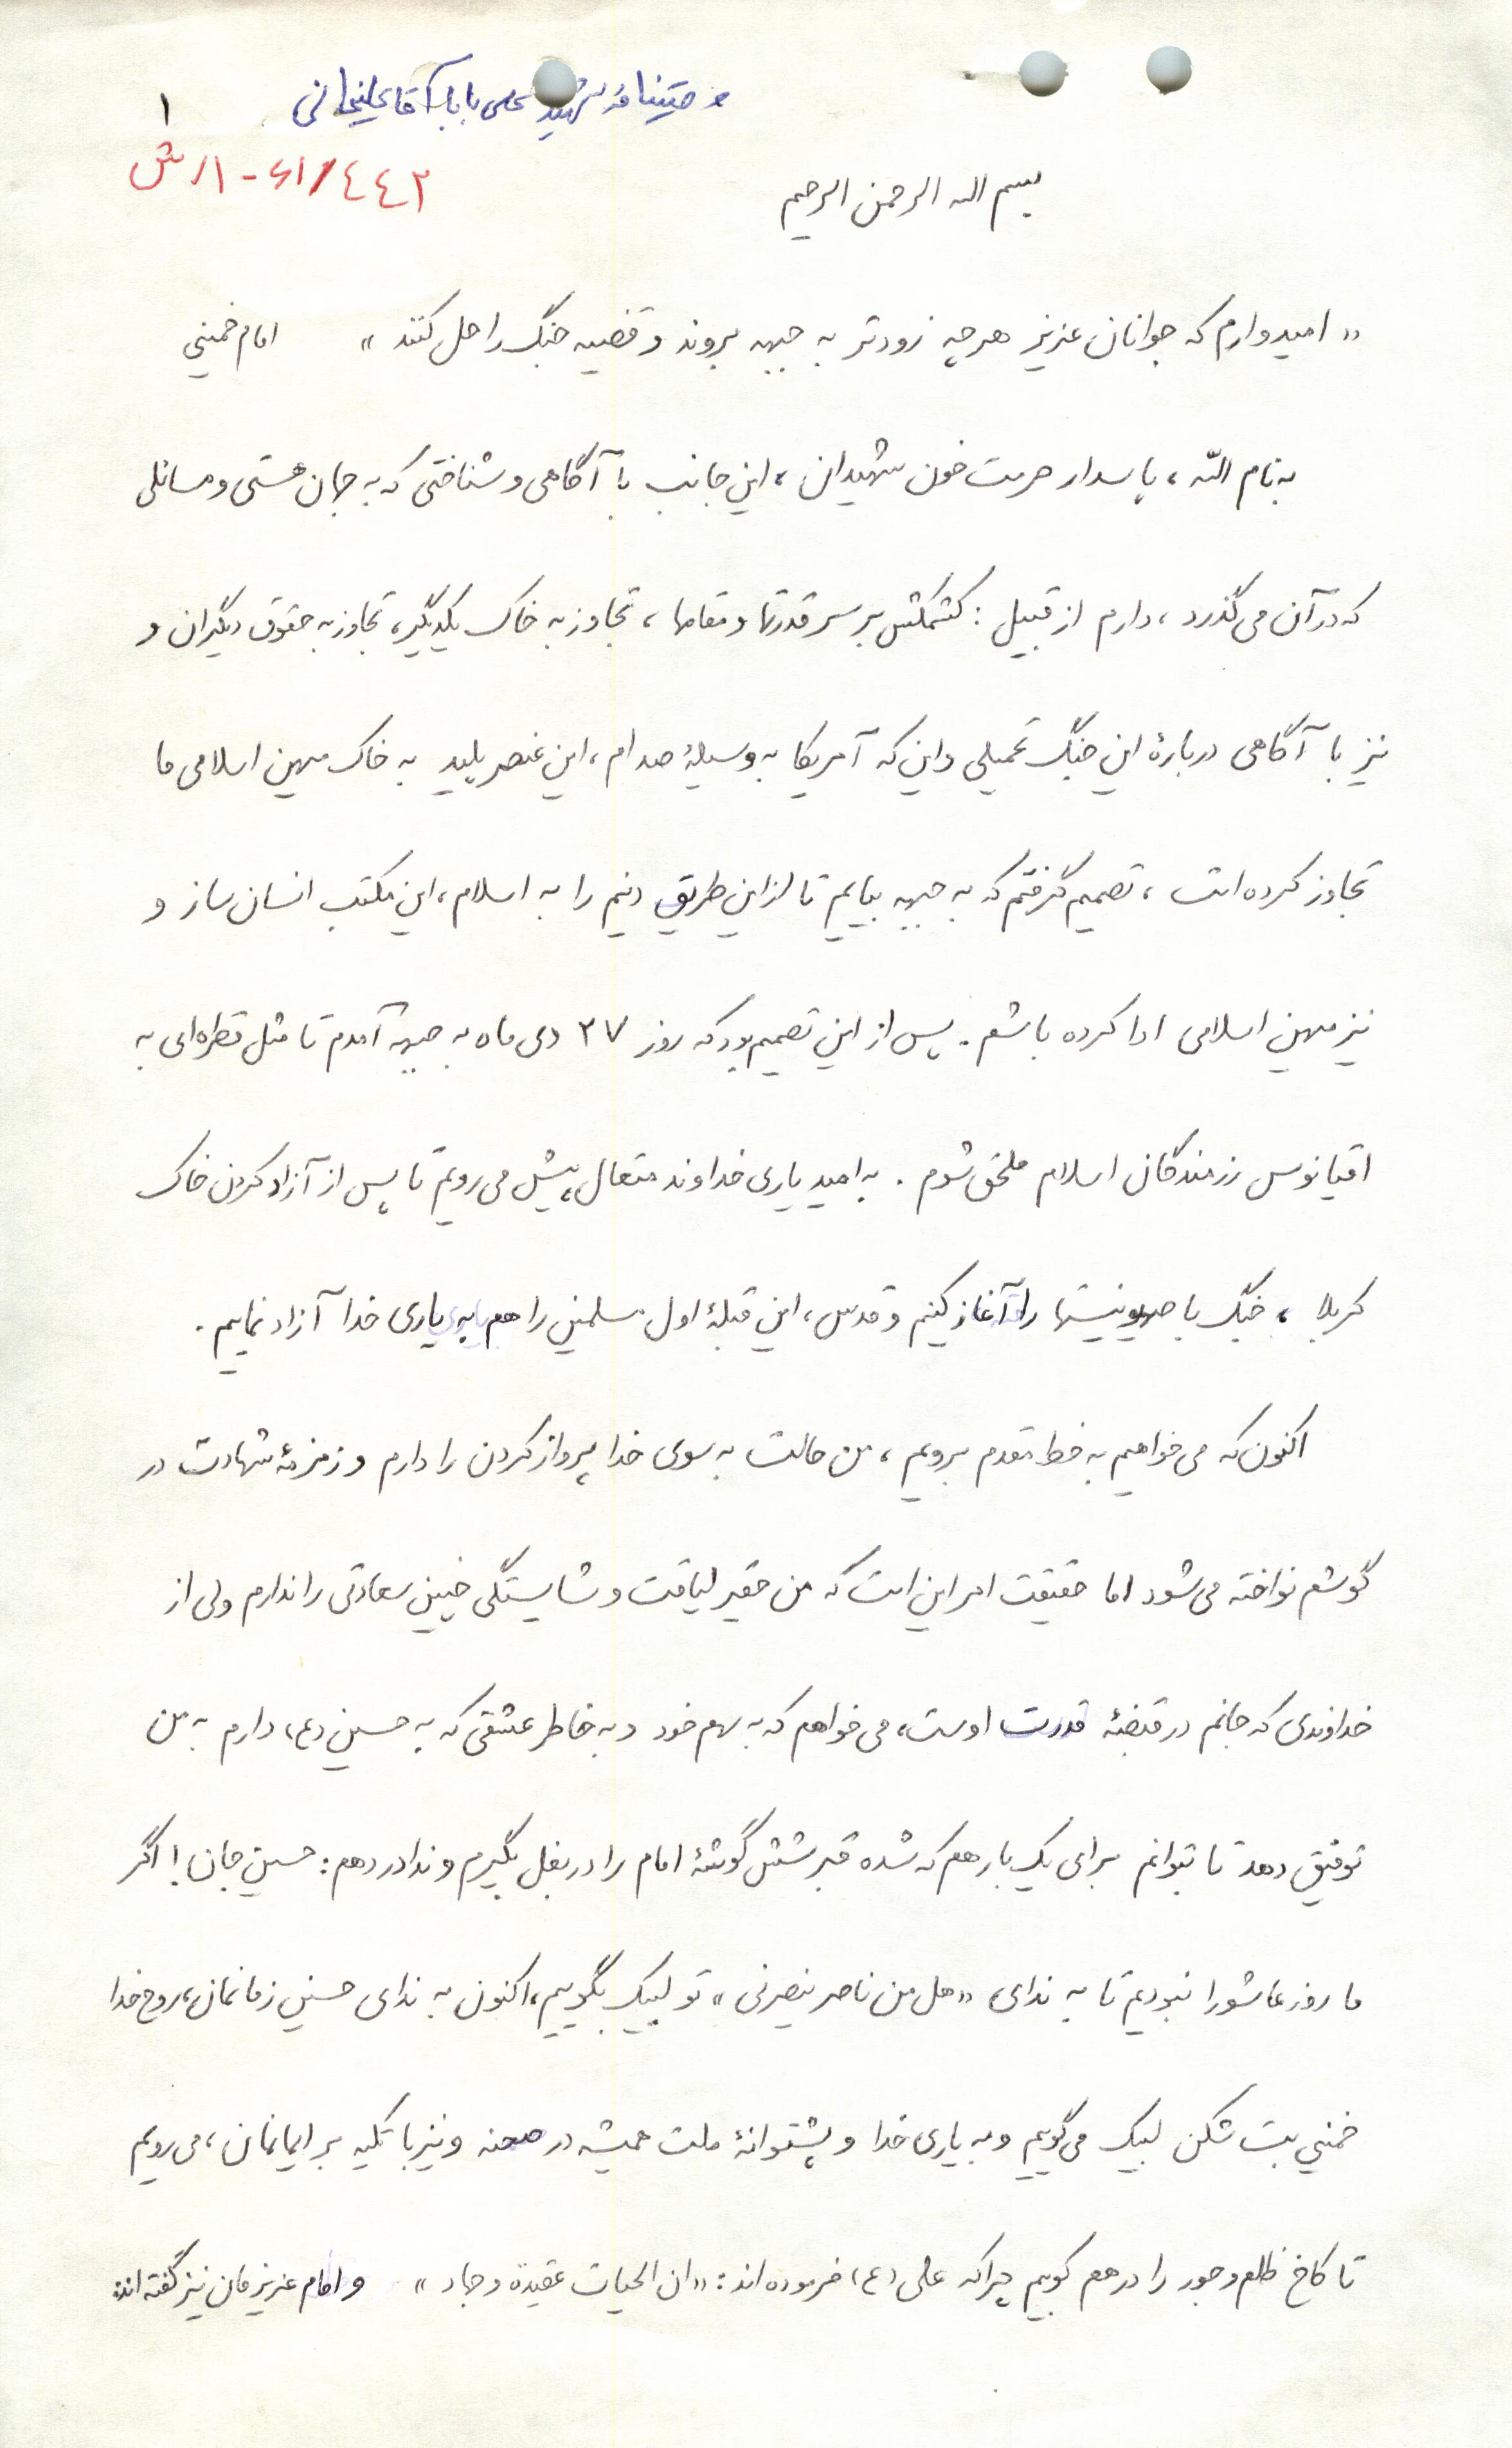 وصیتنامهٔ شهید علی بابا آقاعلیخانی
۱
۱۰-۶۱/۴۴۲ ش
بسم الله الرحمن الرحیم
«امیدوارم که جوانان عزیز هرچه زودتر به جبهه بروند و قضیه جنگ را حل کنند» امام خمینی
به نام اللّه، پاسدار حرمت خون شهیدان، این جانب با آگاهی و شناختی که به جهان هستی و مسائلی
که در آن می‌گذرد، دارم از قبیل: کشمکش بر سر قدرتها و مقامها، تجاوز به خاک یکدیگر، تجاوز به حقوق دیگران و
نیز با آگاهی دربارهٔ این جنگ تحمیلی و این که آمریکا به وسیلهٔ صدام، این عنصر پلید به خاک میهن اسلامی ما
تجاوز کرده است، تصمیم گرفتم که به جبهه بیایم تا از این طریق دینم را به اسلام، این مکتب انسان ساز و
نیز میهن اسلامی ادا کرده باشم. پس از این تصمیم بود که روز ۲۷ دی ماه به جبهه آمدم تا مثل قطره‌ای به
اقیانوس رزمندگان اسلام ملحق شوم. به امید یاری خداوند متعال، پیش می‌رویم تا پس از آزاد کردن خاک
کربلا، جنگ با صهیونیستها را آغاز کنیم و قدس، این قبلهٔ اول مسلمین را هم به یاری خدا آزاد نماییم.
اکنون که می‌خواهیم به خط مقدم برویم، من حالت به سوی خدا پرواز کردن را دارم و زمزمهٔ شهادت در
گوشم نواخته می‌شود اما حقیقت امر این است که من حقیر لیاقت و شایستگی چنین سعادتی را ندارم ولی از
خداوندی که جانم در قبضهٔ قدرت اوست، می‌خواهم که به سهم خود و به خاطر عشقی که به حسین (ع) دارم به من
توفیق دهد تا بتوانم برای یک بار هم که شده قبر شش گوشهٔ امام را در بغل بگیرم و ندا در دهم: حسین جان! اگر
ما روز عاشورا نبودیم تا به ندای «هل من ناصر ینصرنی» تو لبیک بگوییم، اکنون به ندای حسین زمانمان، روح خدا
خمینی بت شکن لبیک می‌گوییم و به یاری خدا و پشتوانهٔ ملت همیشه در صحنه و نیز با تکیه بر ایمانمان، می‌رویم
تا کاخ ظلم و جور را در هم کوبیم چرا که علی (ع) فرموده‌اند: «ان الحیات عقیدة و جهاد» و امام عزیزمان نیز گفته‌اند: